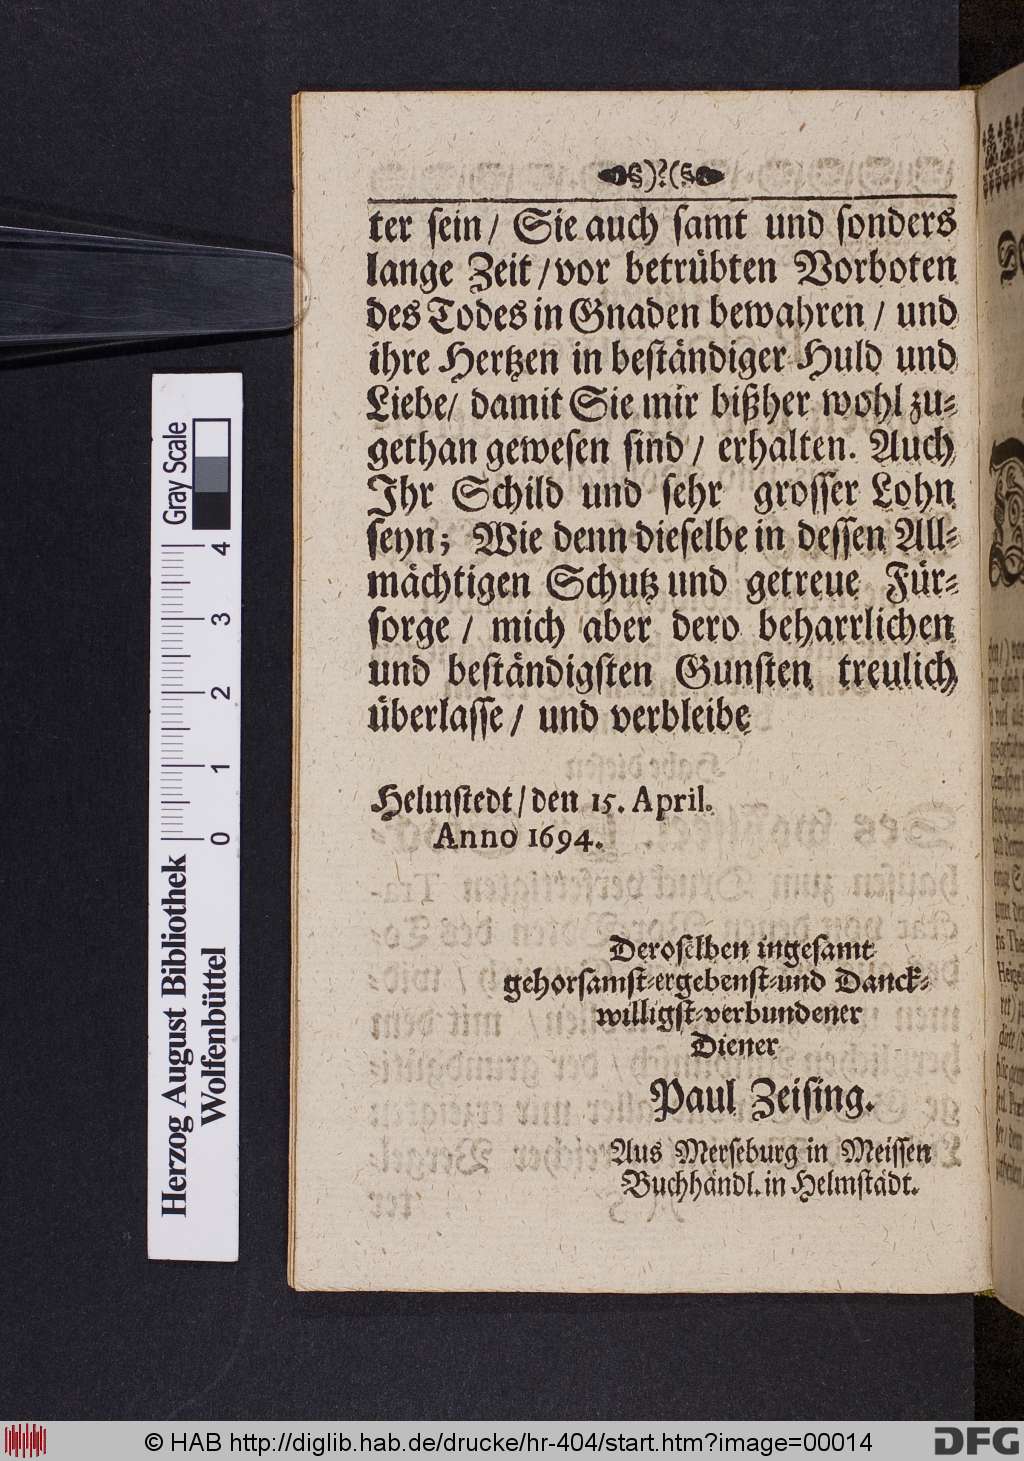 ter sein / Sie auch samt und sonders
lange Zeit / vor betrübten Vorboten
des Todes in Gnaden bewahren / und
ihre Hertzen in beständiger Huld und
Liebe / damit Sie mir bißher wohl zu-
gethan gewesen sind / erhalten. Auch
Ihr Schild und sehr grosser Lohn
seyn; Wie denn dieselbe in dessen All-
mächtigen Schutz und getreue Für-
sorge / mich aber dero beharrlichen
und beständigsten Gunsten treulich
überlasse / und verbleibe
Helmstedt / den 15. April.
Anno 1694.
Deroselben ingesamt
gehorsamst-ergebenst-und Danck-
willigst-verbundener
Diener
Paul Zeising.
Aus Merseburg in Meissen
Buchhändl. in Helmstädt.
Herzog August Bibliothek
Wolfenbüttel
0 1 2 3 4
Gray Scale
© HAB http://diglib.hab.de/drucke/hr-404/start.htm?image=00014
DFG